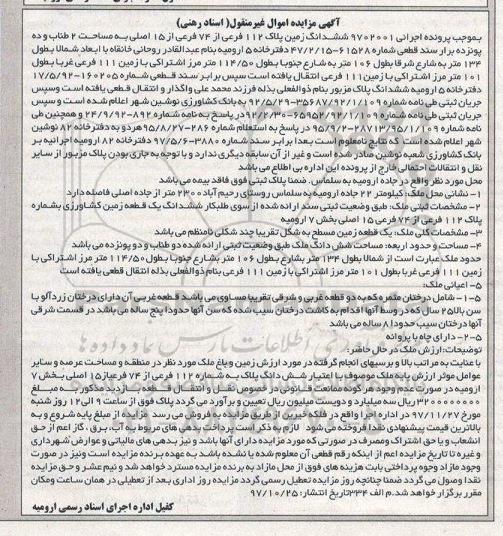 آگهی مزایده اموال غیرمنقول( اسناد رهنی)
بموجب پرونده اجرائی ۹۷۰۲۰۰۱ ششدانگ زمین پلاک ۱۱۲ فرعی از ۷۴ فرعی از ۱۵ اصلی به مساحت ۲ طناب و ده
پونزده برابر سند قطعی شماره ۶۱۵۲۸-۴۷/۲/۱۵ دفترخانه ۵ ارومیه بنام عبدالقادر روحانی خانقاه با ابعاد شمالا بطول
۱۳۴ متر به شارع شرقا بطول ۱۰۶ متر به شارع جنوبا بطول ۱۱۴/۵۰ متر مرز اشتراکی با زمین ۱۱۱ فرعی غربا بطول
۱۰۱ متر مرز اشتراکی با زمین ۱۱۱ فرعی انتقال یافته است سپس برابر سند قطعی شماره ۱۶۰۲۰۵-۱۷/۵/۹۲
دفترخانه ۵ ارومیه ششدانگ پلاک مزبور بنام ذوالفعلی بذله فرزند محمد علی واگذار و انتقال قطعی یافته است وسپس
جریان ثبتی طی نامه شماره ۳۵۶۸۷/۹۲/۱/۱۰۹-۹۲/۵/۲۹ به بانک کشاورزی نوشین شهر اعلام شده است و سپس
جریان ثبتی طی نامه شماره ۶۵۹۵۲/۹۲/۱/۱۰۹-۹۲/۲/۳۰ در پاسخ به نامه شماره ۸۹۲-۹۲/۹/۲۴ و همچنین طی
نامه شماره ۲۸۷۱۳/۹۵/۱/۱۰۹-۹۵/۷/۲ در پاسخ به استعلام شماره ۲۸۶-۹۵/۸/۲۷ هردو به دفترخانه ۸۲ نوشین
شهر اعلام شده است که نتایج نامعلوم است بعدا برابر سند شماره ۳۸۸۰-۹۷/۵/۶ دفترخانه ۸۲ ارومیه اجرائیه بر
بانک کشاورزی شعبه نوشین صادر شده است و غیر از آن سابقه دیگری ندارد و با توجه به جاری بودن پلاک مزبور از سایر
نقل و انتقالات احتمالی خارج از پرونده این اداره بی اطلاع می باشد
محل مورد نظر واقع در جاده ارومیه به سلماس . ضمنا پلاک ثبتی فوق فاقد بیمه می باشد
۱- نشانی محل ملک: کیلومتر ۲۲ جاده ارومیه به سلماس روستای رحیم آباد ۲۳۰۰ متر از جاده اصلی فاصله دارد
۲- مشخصات ثبتی ملک: طبق وضعیت ثبتی سند ارائه شده از سوی طلبکار ششدانگ یک قطعه زمین کشاورزی بشماره
پلاک ۱۱۲ فرعی از ۷۴ فرعی ۱۵ اصلی بخش ۷ ارومیه
۳- مشخصات کلی ملک: یک قطعه زمین مسطح به شکل تقریبا چند شکلی نامنظم می باشد
۴- مساحت و حدود اربعه: مساحت شش دانگ ملک طبق وضعیت ثبتی ارائه شده دو طناب و دو پونزده می باشد
حدود ملک عبارت است از شمالا بطول ۱۳۴ متر بشارع بطول ۱۰۶ متر بشارع جنوبا بطول ۱۱۴/۵۰ متر مرز اشتراکی با
زمین ۱۱۱ فرعی غربا بطول ۱۰۱ متر مرز اشتراکی با زمین ۱۱۱ فرعی بنام ذوالفعلی بذله انتقال قطعی یافته است
۵- اعیانی ملک:
۵-۱- شامل درختان مثمره که به دو قطعه غربی و شرقی تقریبا مساوی می باشد قطعه غربی آن دارای درختان زردآلو با
سن بالا ۲۵ سال که در وسط آنها اقدام به کاشت درختان سیب شده که سن آنها حدودا پنج ساله می باشد در قسمت شرقی
آنها درختان سیب حدودا ۸ ساله می باشد
۵-۲- دارای چاه با پروانه
توضیحات:ارزش ملک در حال حاضر:
با عنایت به مراتب بالا و برسیهای انجام گرفته در مورد ارزش زمین و باغ ملک مورد نظر در منطقه و مساحت عرصه و سایر
عوامل موثر ارزش پایه ملک موصوف با اعتبار شش دانگ پلاک به شماره ۱۱۲ فرعی از ۷۴ فرعی از ۱۵ اصلی بخش ۷
ارومیه در صورت عدم وجود هرگونه ممانعت قانونی در خصوص نقل و انتقال قطعه بازدید مذکور... به مبلغ
۳۲۰۰۰۰۰۰۰۰ ریال سه میلیارد و دویست میلیون ریال تعیین و برآورد می گردد پلاک فوق از ساعت ۹ الی ۱۲ روز شنبه
مورخ ۹۷/۱۱/۲۷ در اداره اجرا واقع در فلکه خیبری از طریق مزایده به فروش می رسد مزایده از مبلغ پایه شروع و به
بالاترین قیمت پیشنهادی نقدا فروخته می شود لازم به ذکر است پرداخت بدهی های مربوط به آب، برق ، گاز اعم از حق
انشعاب و یا حق اشتراک ومصرف در صورتی که مورد مزایده دارای آنها باشد و نیز بدهی های مالیاتی و عوارض شهرداری
و غیره تا تاریخ مزایده اعم از اینکه رقم قطعی آن معلوم شده یا نشده باشد به عهده برنده مزایده است ونیز در صورت
وجود مازاد وجوه پرداختی بابت هزینه های فوق از محل مازاد به برنده مزایده مسترد خواهد شد و نیم عشر و حق مزایده
نقدا وصول می گردد ضمنا چنانچه روز مزایده تعطیل رسمی گردد مزایده روز اداری بعد از تعطیلی در همان ساعت ومکان
مقرر برگزار خواهد شد.م الف ۳۳۴ تاریخ انتشار: ۹۷/۱۰/۲۵
کفیل اداره اجرای اسناد رسمی ارومیه